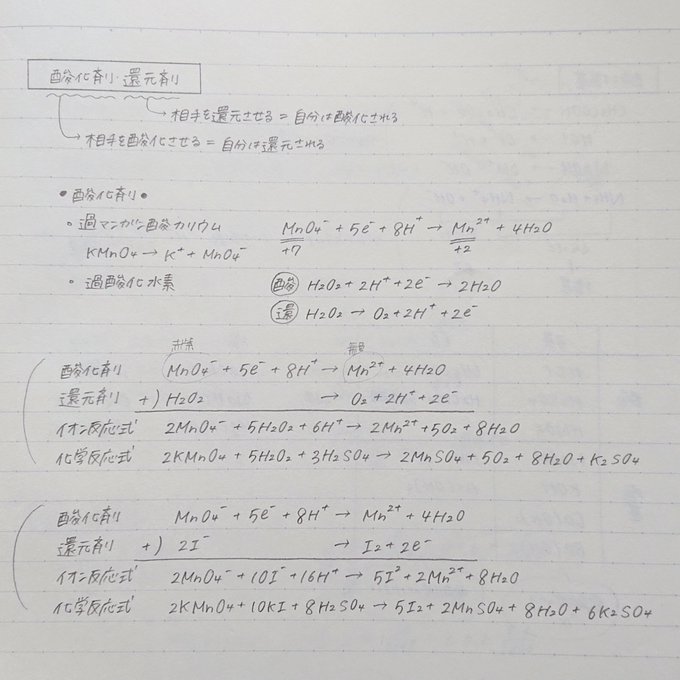 酸化剤・還元剤
→相手を還元させる=自分は酸化される
→相手を酸化させる=自分は還元される
●酸化剤●
・過マンガン酸カリウム MnO₄⁻ + 5e⁻ + 8H⁺ → Mn²⁺ + 4H₂O
+7 +2
KMnO₄ → K⁺ + MnO₄⁻
・過酸化水素 酸 H₂O₂ + 2H⁺ + 2e⁻ → 2H₂O
還 H₂O₂ → O₂ + 2H⁺ + 2e⁻
赤紫 無色
酸化剤 MnO₄⁻ + 5e⁻ + 8H⁺ → Mn²⁺ + 4H₂O
還元剤 +) H₂O₂ → O₂ + 2H⁺ + 2e⁻
イオン反応式 2MnO₄⁻ + 5H₂O₂ + 6H⁺ → 2Mn²⁺ + 5O₂ + 8H₂O
化学反応式 2KMnO₄ + 5H₂O₂ + 3H₂SO₄ → 2MnSO₄ + 5O₂ + 8H₂O + K₂SO₄
酸化剤 MnO₄⁻ + 5e⁻ + 8H⁺ → Mn²⁺ + 4H₂O
還元剤 +) 2I⁻ → I₂ + 2e⁻
イオン反応式 2MnO₄⁻ + 10I⁻ + 16H⁺ → 5I² + 2Mn²⁺ + 8H₂O
化学反応式 2KMnO₄ + 10KI + 8H₂SO₄ → 5I₂ + 2MnSO₄ + 8H₂O + 6K₂SO₄